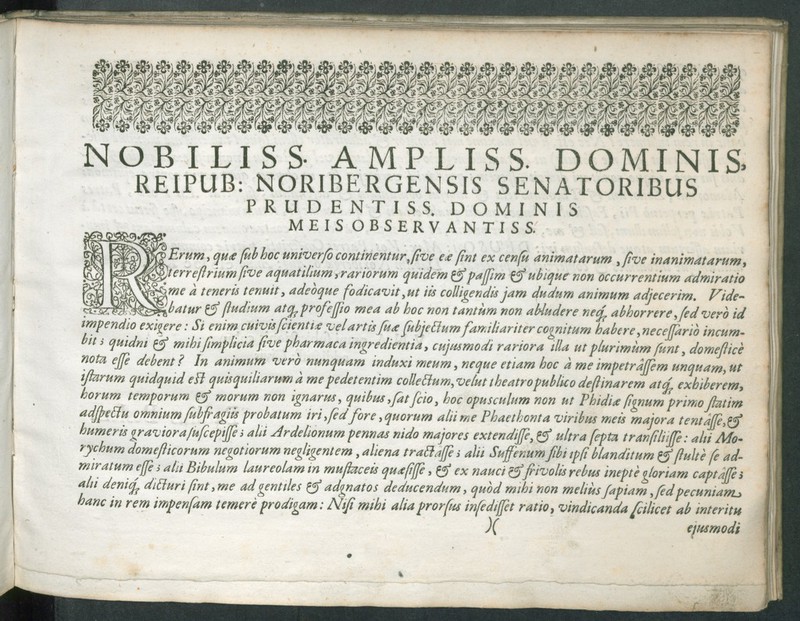 NOBILISS. AMPLISS. DOMINIS,
REIPUB: NORIBERGENSIS SENATORIBUS
PRUDENTISS. DOMINIS
MEIS OBSERVANTISS.
RErum, quæ ſub hoc univerſo continentur, ſive eæ ſint ex cenſu animatarum, ſive inanimatarum,
terreſtrium ſive aquatilium, rariorum quidem & paſſim & ubique non occurrentium admiratio
me à teneris tenuit, adeòque fodicavit, ut iis colligendis jam dudum animum adjecerim. Vide-
batur & ſtudium atq́; profeſſio mea ab hoc non tantùm non abludere neq́; abhorrere, ſed verò id
impendio exigere: Si enim cuivis ſcientiæ vel artis ſuæ ſubjectum familiariter cognitum habere, neceſſariò incum-
bit; quidni & mihi ſimplicia ſive pharmaca ingredientia, cujuſmodi rariora illa ut plurimùm ſunt, domeſticè
nota eſſe debent? In animum verò nunquam induxi meum, neque etiam hoc à me impetrâſſem unquam, ut
iſtarum quidquid eſt quiſquiliarum à me pedetentim collectum, velut theatro publico deſtinarem atq́; exhiberem,
horum temporum & morum non ignarus, quibus, ſat ſcio, hoc opuſculum non ut Phidiæ ſignum primo ſtatim
adſpectu omnium ſubfragiis probatum iri, ſed fore, quorum alii me Phaethonta viribus meis majora tentâſſe, &
humeris graviora ſuſcepiſſe; alii Ardelionum pennas nido majores extendiſſe, & ultra ſepta tranſiliiſſe: alii Mo-
rychum domeſticorum negotiorum negligentem, aliena tractâſſe; alii Suffenum ſibi ipſi blanditum & ſtultè ſe ad-
miratum eſſe; alii Bibulum laureolam in muſtaceis quæſiſſe, & ex nauci & frivolis rebus ineptè gloriam captâſſe;
alii deniq́; dicturi ſint, me ad gentiles & adgnatos deducendum, quòd mihi non meliùs ſapiam, ſed pecuniam
hanc in rem impenſam temerè prodigam: Niſi mihi alia prorſus inſediſſet ratio, vindicanda ſcilicet ab interitu
)( ejusmodi